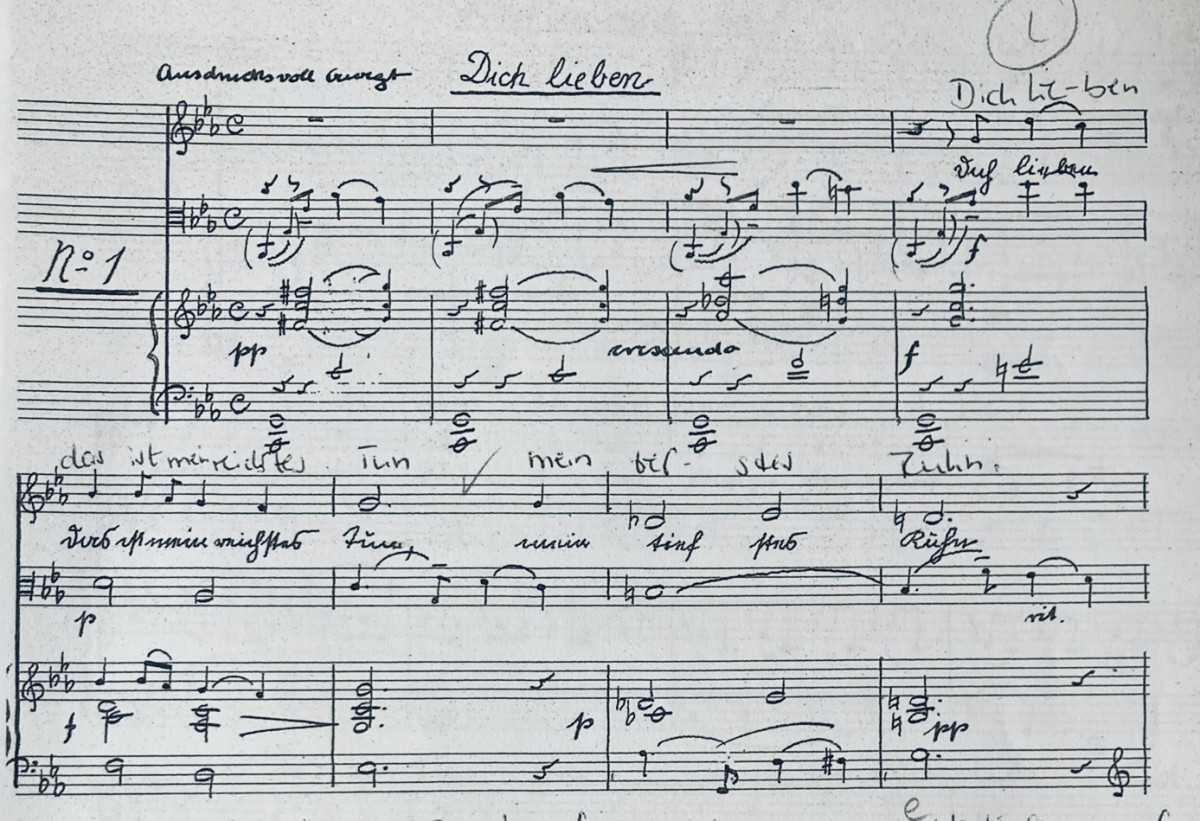 L
Ausdrucksvoll bewegt Dich lieben
Dich lie-ben
Dich lieben
No 1
pp crescendo f
f
das ist mein reichstes Tun mein tief- stes Ruhn.
Das ist mein reichstes Tun, mein tief stes Ruhn
p rit.
f p pp